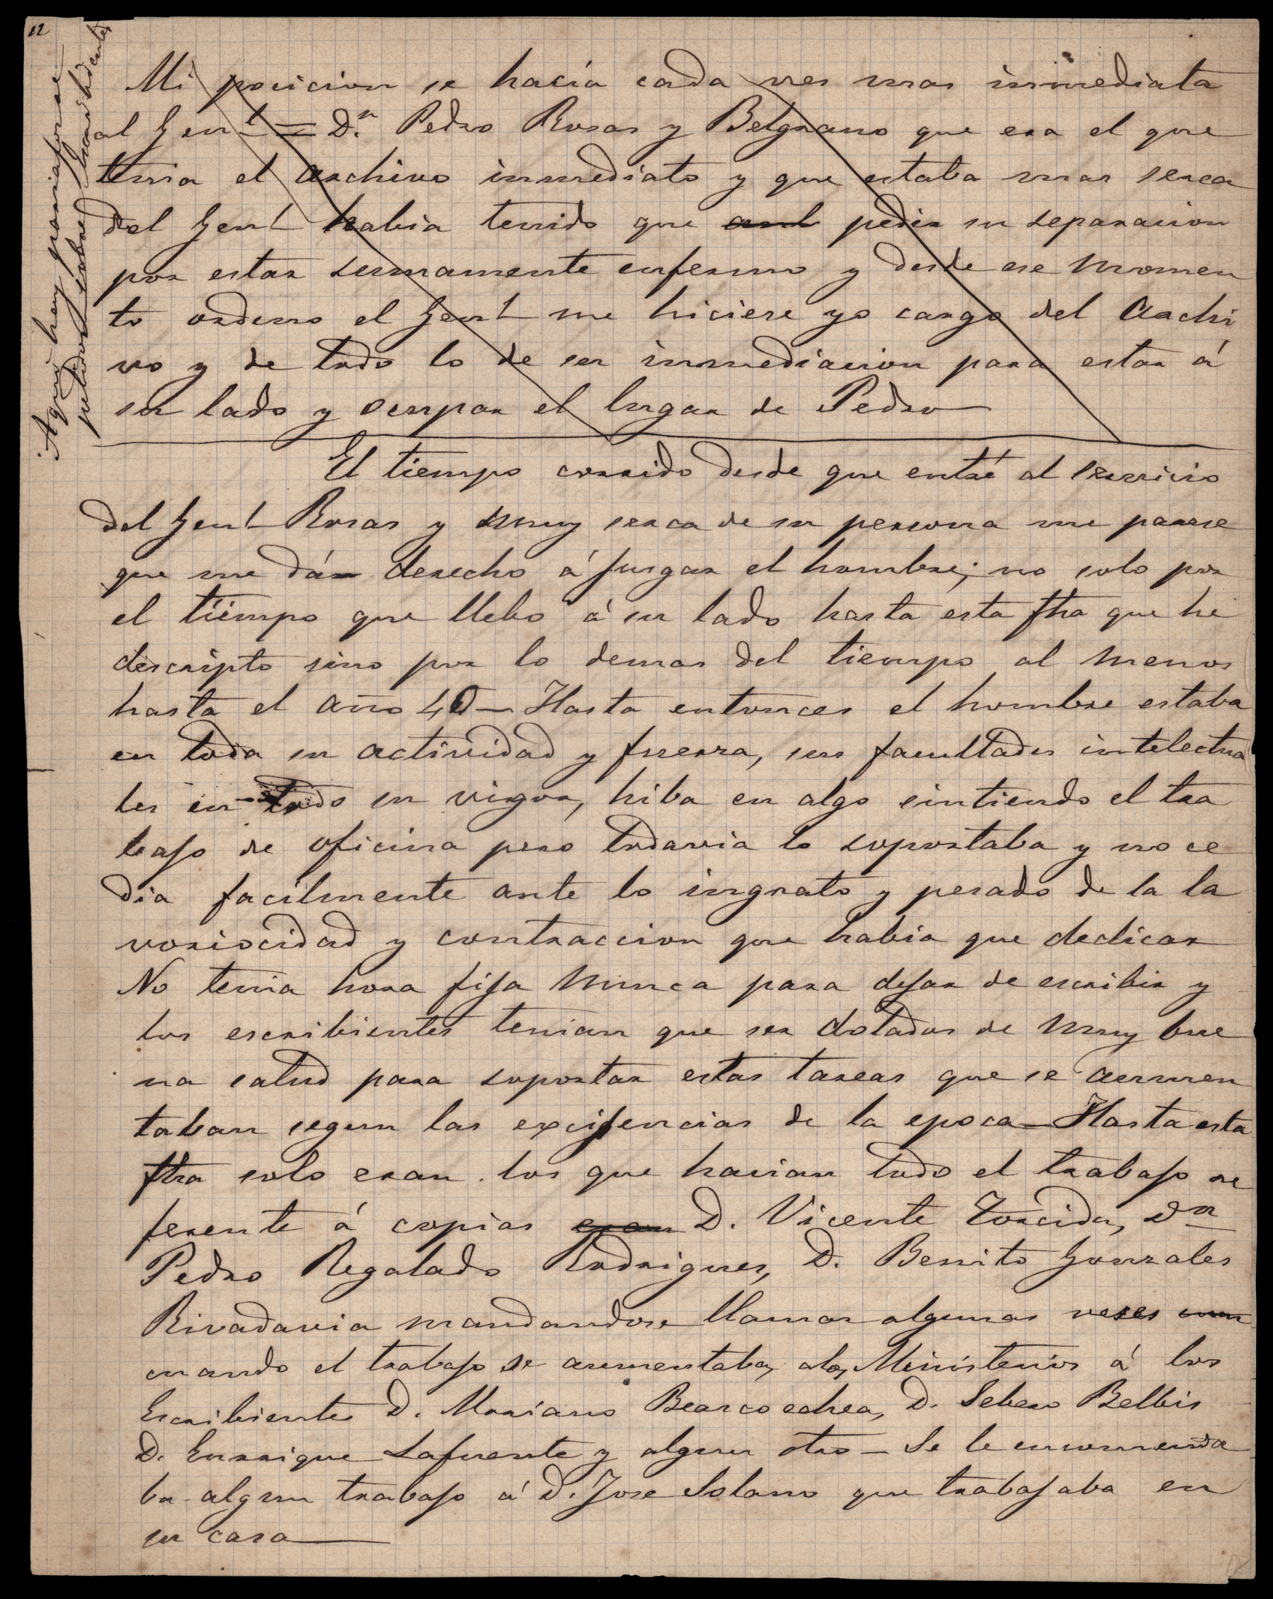 12
Aqui hay q
sobre los escribientes
Mi posicion se hacía cada ves mas inmediata
al Gen.l = D.n Pedro Rosas y Belgrano que era el que
tenia el archivo inmediato y que estaba mas serca
del Genl habia tenido que pedir su separacion
por estar sumamente enfermo y desde ese momen
to ordeno el Genl me hiciere yo cargo del Archi
vo y de todo lo de su inmediacion para estar á
su lado y ocupar el lugar de Pedro
El tiempo corrido desde que entré al servicio
del Genl Rosas y muy serca de su persona me parese
que me dá derecho á jusgar el hombre; no solo por
el tiempo que llebo á su lado hasta esta fha que he
descripto sino por lo demas del tiempo al menos
hasta el año 40 — Hasta entonces el hombre estaba
en toda su actividad y fuerza, sus facultades intelectua
les en todo su vigor, hiba en algo sintiendo el tra
bajo de oficina pero todavia lo soportaba y no ce
dia facilmente ante lo ingrato y pesado de la la
voriocidad y contraccion que habia que dedicar
No tenia hora fija nunca para dejar de escribir y
los escribientes tenian que ser dotados de muy bue
na salud para soportar estas tareas que se aumen
taban segun las excijencias de la epoca — Hasta esta
fha solo eran los que hacian todo el trabajo re
ferente á copias eran D. Vicente Torcida, Dn
Pedro Regalado Rodrigues, D. Benito Gonzales
Rivadavia mandandose llamar algunas veses
cuando el trabajo se aumentaba, alos Ministerios á los
Escribientes D. Mariano Beascoechea, D. Sebero Belbis
D. Enrrique Lafuente y algun otro — Se le encomenda
ba algun trabajo á D. Jose Solano que trabajaba en
su casa —